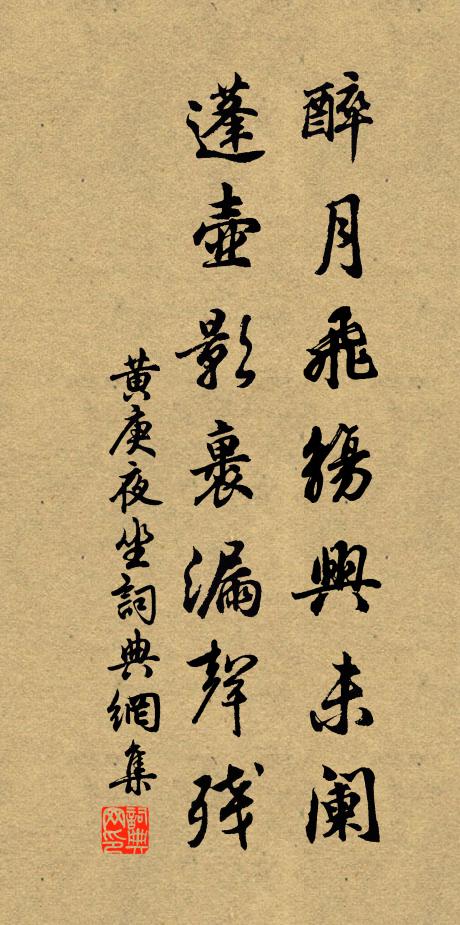 醉月飛觴興未闌
蓬壺影裏漏聲残
黃庚夜坐詞典網集
詞典网印